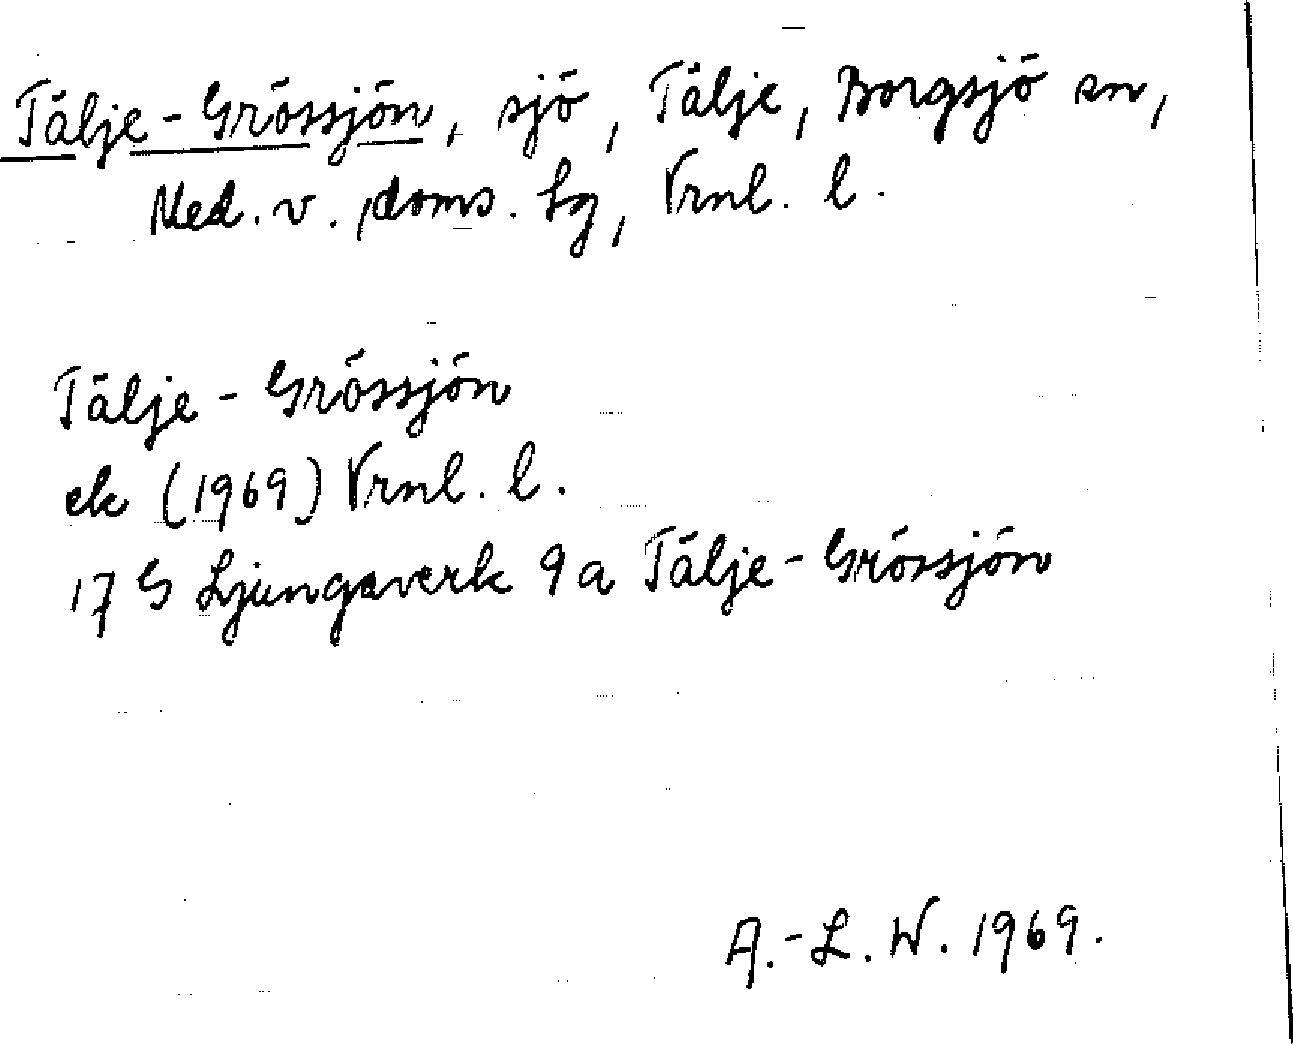 Tälje-Grössjön, sjö, Tälje, Borgsjö sn,
Med. v. doms. lg, Vrnl. l.
Tälje-Grössjön
ek (1969) Vrnl. l.
17 G Ljungaverk 9a Tälje-Grössjön
A.-L. W. 1969.